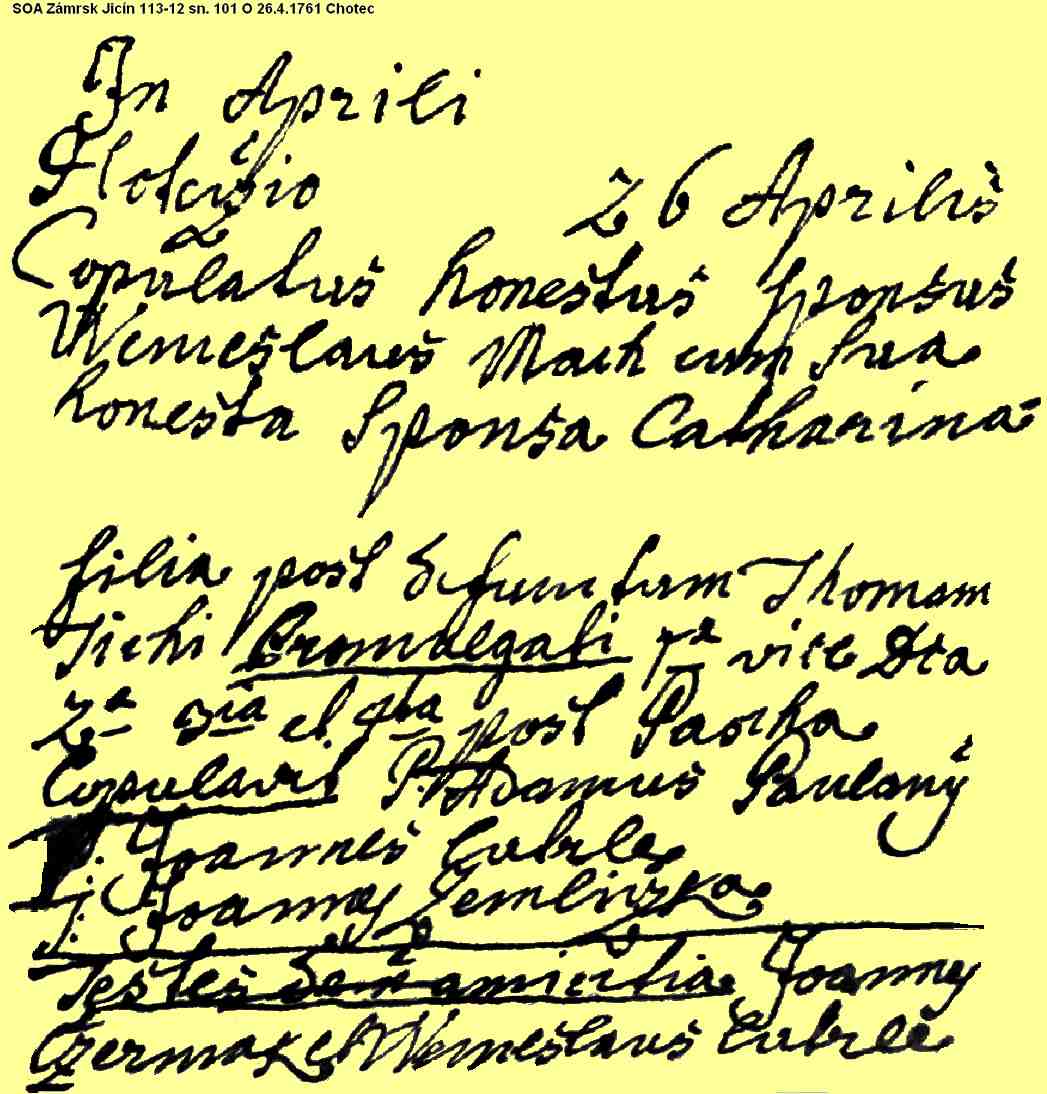 SOA Zámrsk Jicín 113-12 sn. 101 O 26.4.1761 Chotec
In Aprili
26 Aprilis
Copulatus honestus Sponsus
Wenceslaus Mach cum sua
honesta Sponsa Catharina
filia post defunctum Thomam
Tichi Promulgati 1a vice Dca
2a 3ia et 4ta post Pascha
Copulavit P. Adamus Paulany
Joannes Cubrle
Joannes Zemliczka
Testes de amicitia Joannes
Czermak et Wenceslaus Cubrle